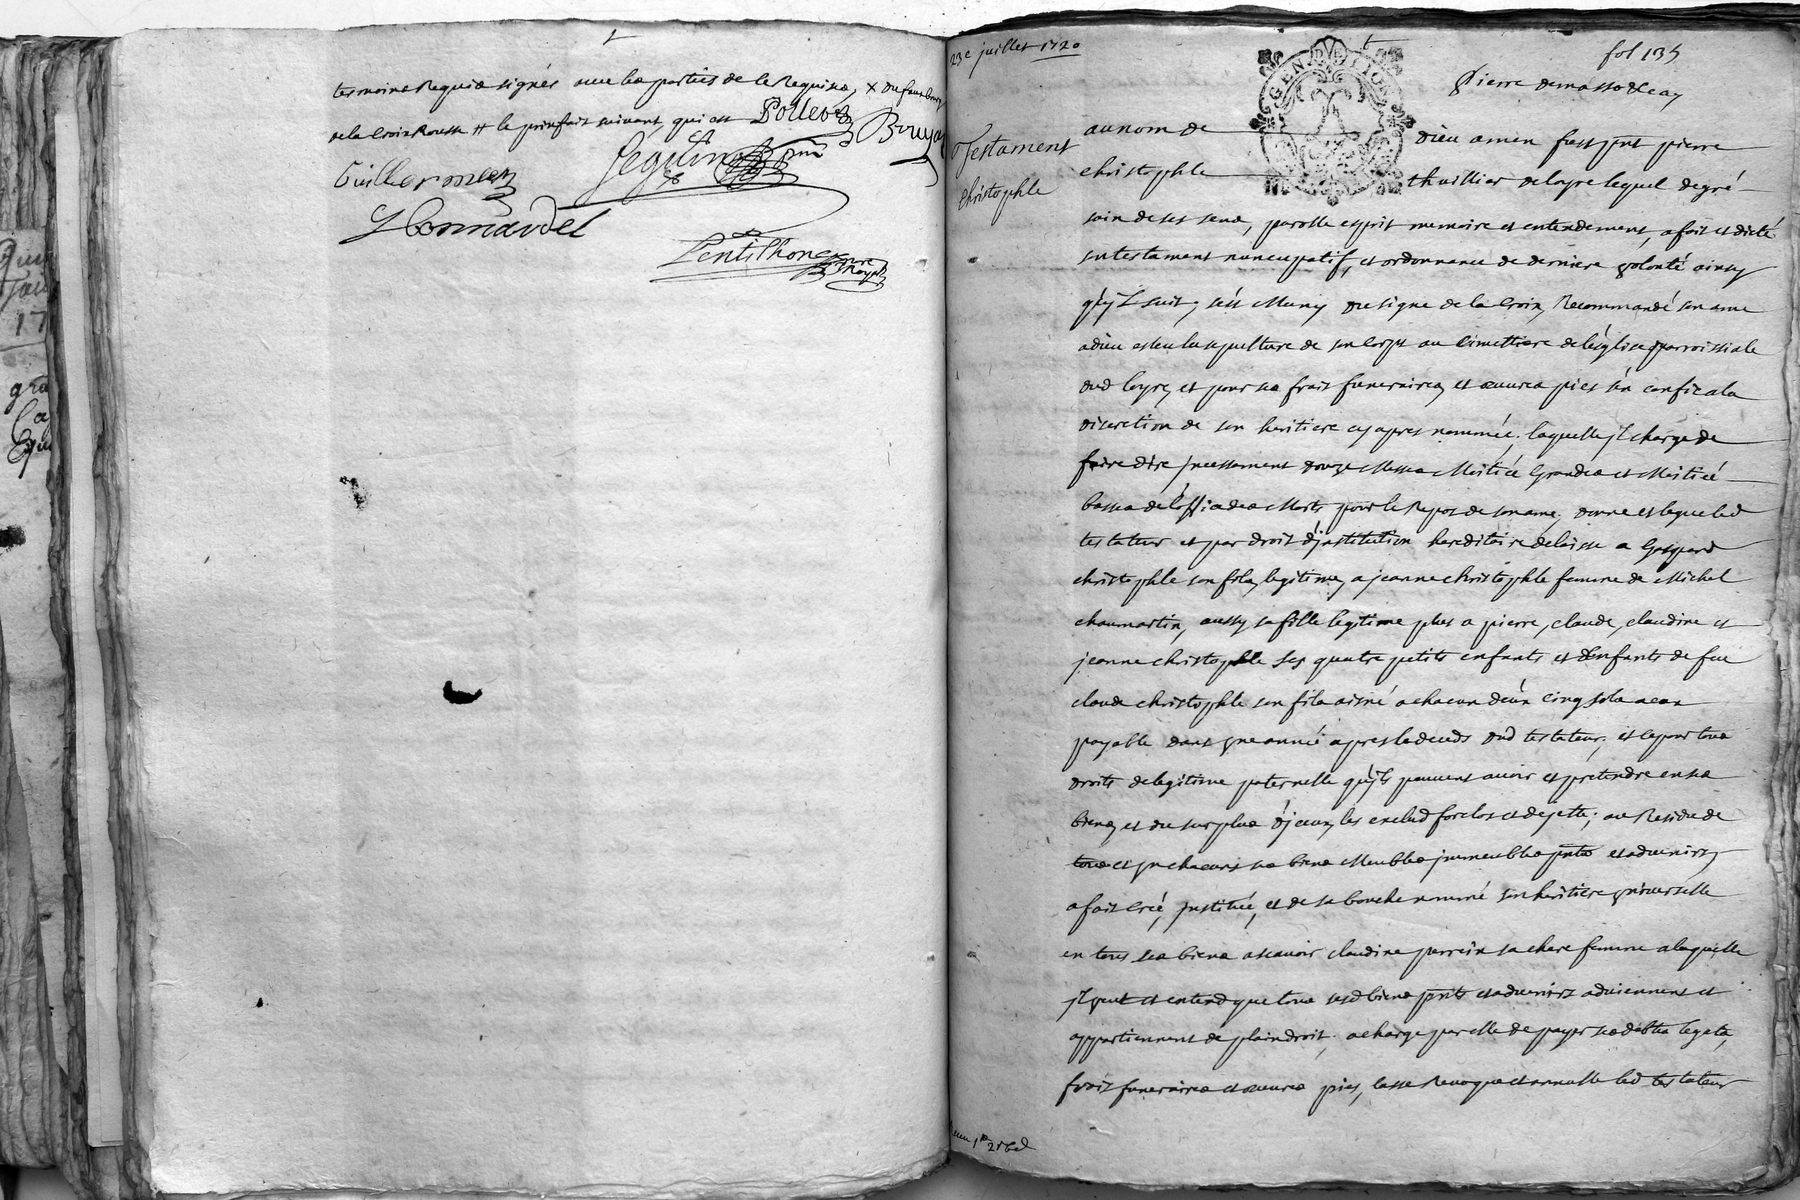 tesmoins Requis signés avec les parties de ce Requises, x du fauxbourg
de la Croix Rousse # le prixfait suivant, qui est Pollet Bruya
Guillermonet Seguin
Y Connardel
Pentilhon
23e juillet 1720
fol 135
Pierre
Testament
christophle
au nom de dieu amen fust pnt pierre
christophle thuillier de loyre lequel de gré
sain de ses sens, parolle esprit memoire et entendement, a fait et dicté
son testament nuncupatif, et ordonnance de derniere volonté ainsy
qu'jl suit, s'est Muny du signe de la Croix, Recommandé son ame
a dieu esleu la sepulture de son Corps au Cimettiere de l'église parroissiale
dud loyre, et pour ses frais funeraires, et œuvres pies s'en confie a la
discretion de son heritiere cy apres nommée; laquelle jl charge de
faire dire jncessament douze Messes Moitié Grandes et Moitié
basses de l'offi des Morts pour le Repos de son ame; donne et legue led
testateur et par droit d'jnstitution hereditaire délaisse a Gaspard
christophle son fils legitime, a jeanne christophle femme de Michel
chaumartin, aussy sa fille legitime plus a pierre, claude, claudine et
jeanne christophle ses quatre petits enfants et Enfants de feu
claude christophle son fils aisné a chacun d'eux cinq sols a eux
payable dans une année apres le deceds dud testateur; et ce pour tous
droits de legitime paternelle qu'jls peuvent avoir et pretendre en ses
biens, et du surplus d'jceux, les exclud forclos et dejette; au Residu de
tous et un chacuns ses biens Meubles jmmeubles pnts et advenirs
a fait créé, jnstitué, et de sa bouche nommé son heritiere universelle
en tous ses biens a scavoir claudine perrein sa chere femme a laquelle
jl veut et entend que tous sesd biens pnts et advenirs adviennent et
appartiennent de plain droit; a charge par elle de payer ses debtes legats,
frais funeraires et œuvres pies, casse Revoque et annulle led testateur